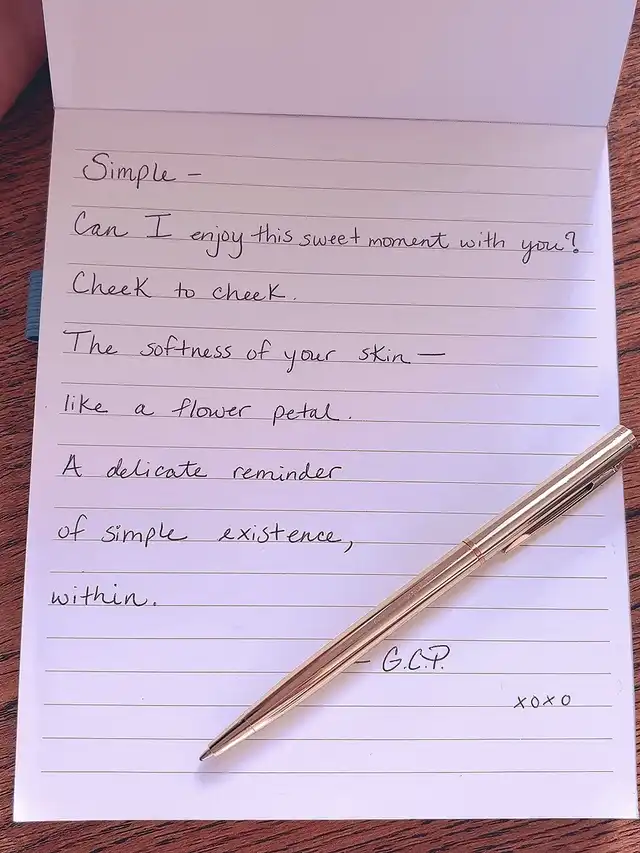 Simple –
Can I enjoy this sweet moment with you?
Cheek to cheek.
The softness of your skin —
like a flower petal.
A delicate reminder
of simple existence,
within.
– G.C.P.
xoxo